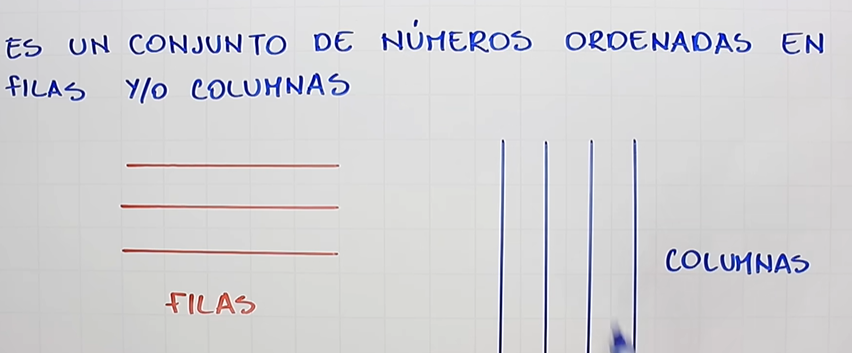 ES UN CONJUNTO DE NÚMEROS ORDENADAS EN
FILAS Y/O COLUMNAS
COLUMNAS
FILAS